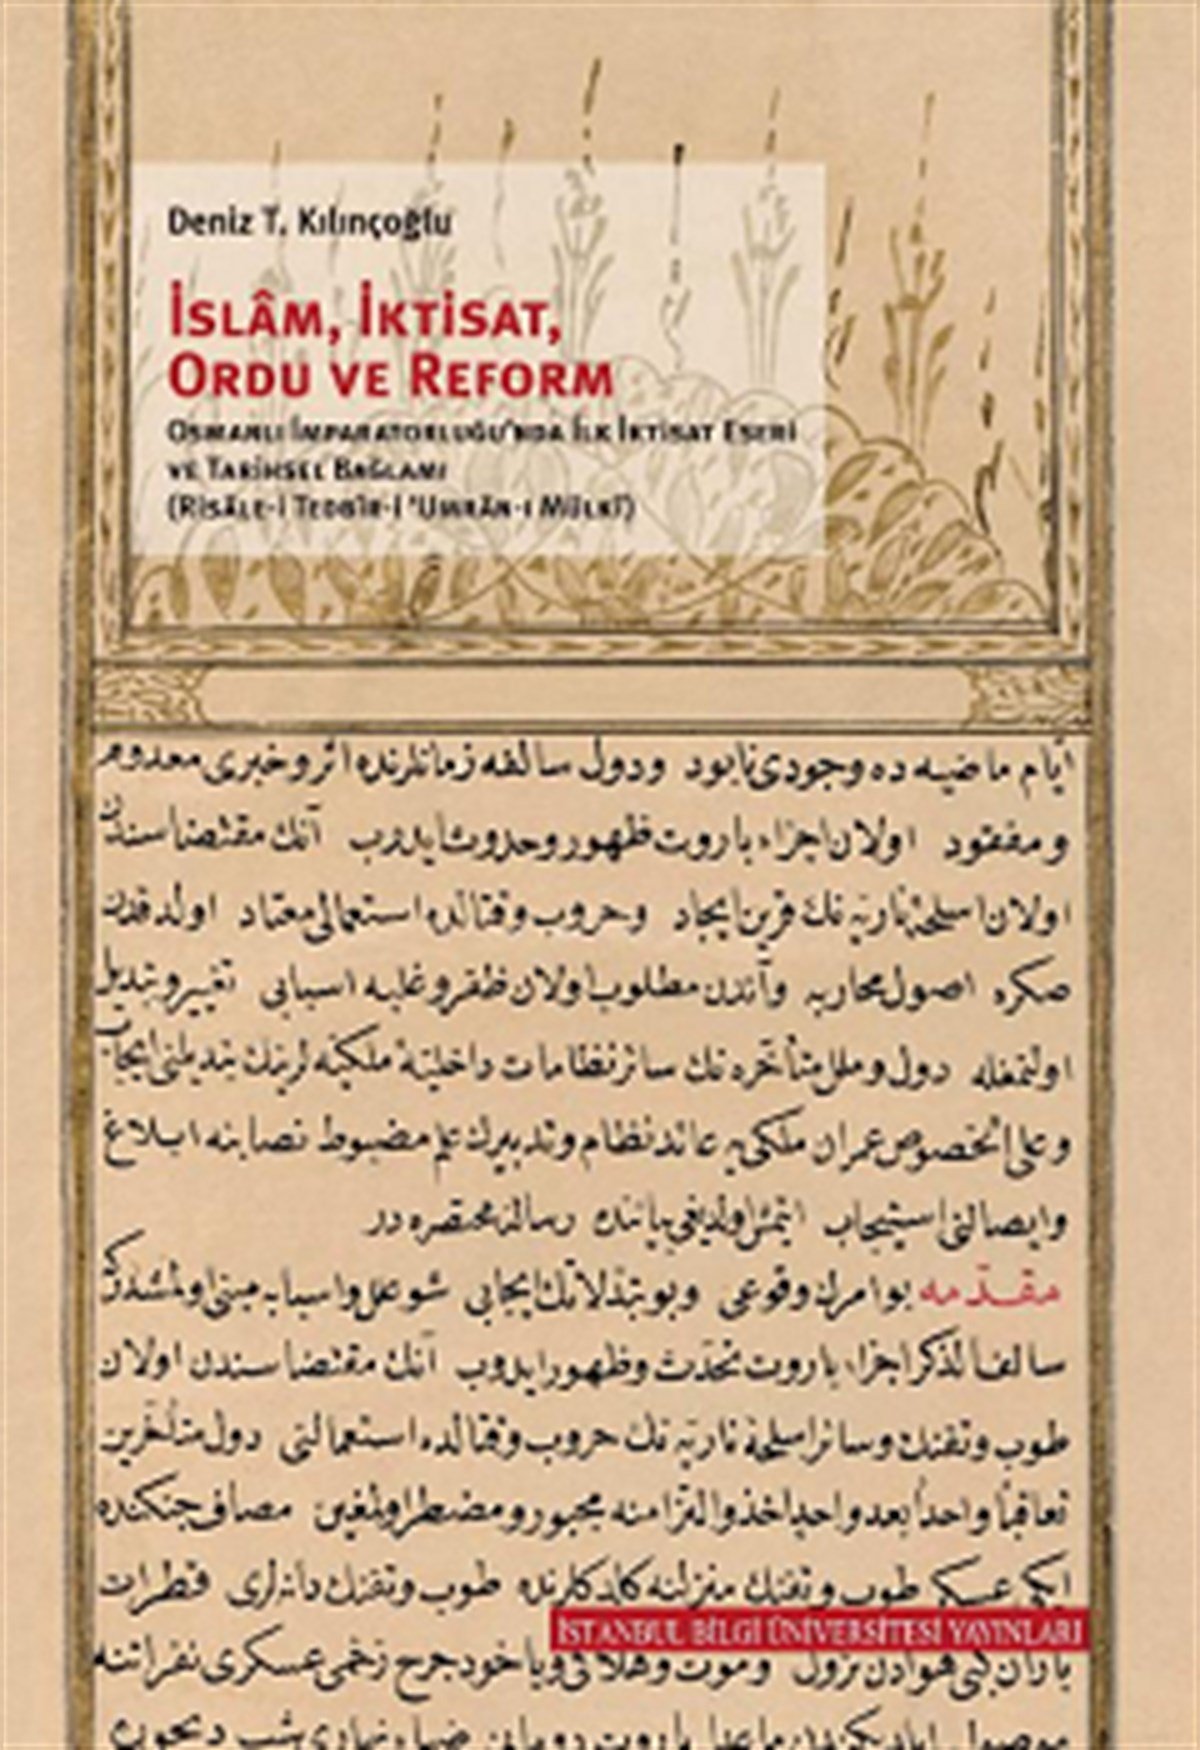 Deniz T. Kılınçoğlu
İSLÂM, İKTİSAT,
ORDU VE REFORM
OSMANLI İMPARATORLUĞU'NDA İLK İKTİSAT ESERİ
VE TARİHSEL BAĞLAMI
(RİSÂLE-İ TEDBÎR-İ 'UMRÂN-I MÜLKÎ)
أيام ماضيه ده وجودى نابود ودول سالفه زمانلرنده اثر وخبرى معدوم
ومفقود اولان اجزاء باروت ظهور وحدوث ايدوب آنك مقتضاسندن
اولان اسلحهٔ ناريه نك قرين ايجاد وحروب وقتالده استعمالى معتاد اولدقدن
صكره اصول محاربه وآندن مطلوب اولان ظفر وغلبه اسبابى تغيير وتبديل
اولنمغله دول وملل متأخره نك سائر نظامات داخليهٔ ملكيه لرينك تبديلنى ايجاب
وعلى الخصوص عمران ملكى يه عائد نظام وتدبيرك علم مضبوط نصابنه ابلاغ
وايصالنى استيجاب ايتمش اولديغى بياننده رساله مختصره در
مقدمه بو امرك وقوعى وبو تبدلاتك ايجابى شو علل واسبابه مبنى اولمشدركه
سالف الذكر اجزاء باروت تحدث وظهور ايدوب آنك مقتضاسندن اولان
طوب وتفنك وسائر اسلحهٔ ناريه نك حروب وقتالده استعمالنى دول متأخرين
تعاقباً واحداً بعد واحد اخذ والتزامنه مجبور ومضطر اولمغين مصاف جنكنده
ايكى عسكر طوب وتفنك منزلنه كلدكلرنده طوب وتفنك دانه لرى قطرات
باران كبى هوادن نزول وموت وهلاكى وياخود جرح زخمى عسكرى نفراتنه
İSTANBUL BİLGİ ÜNİVERSİTESİ YAYINLARI